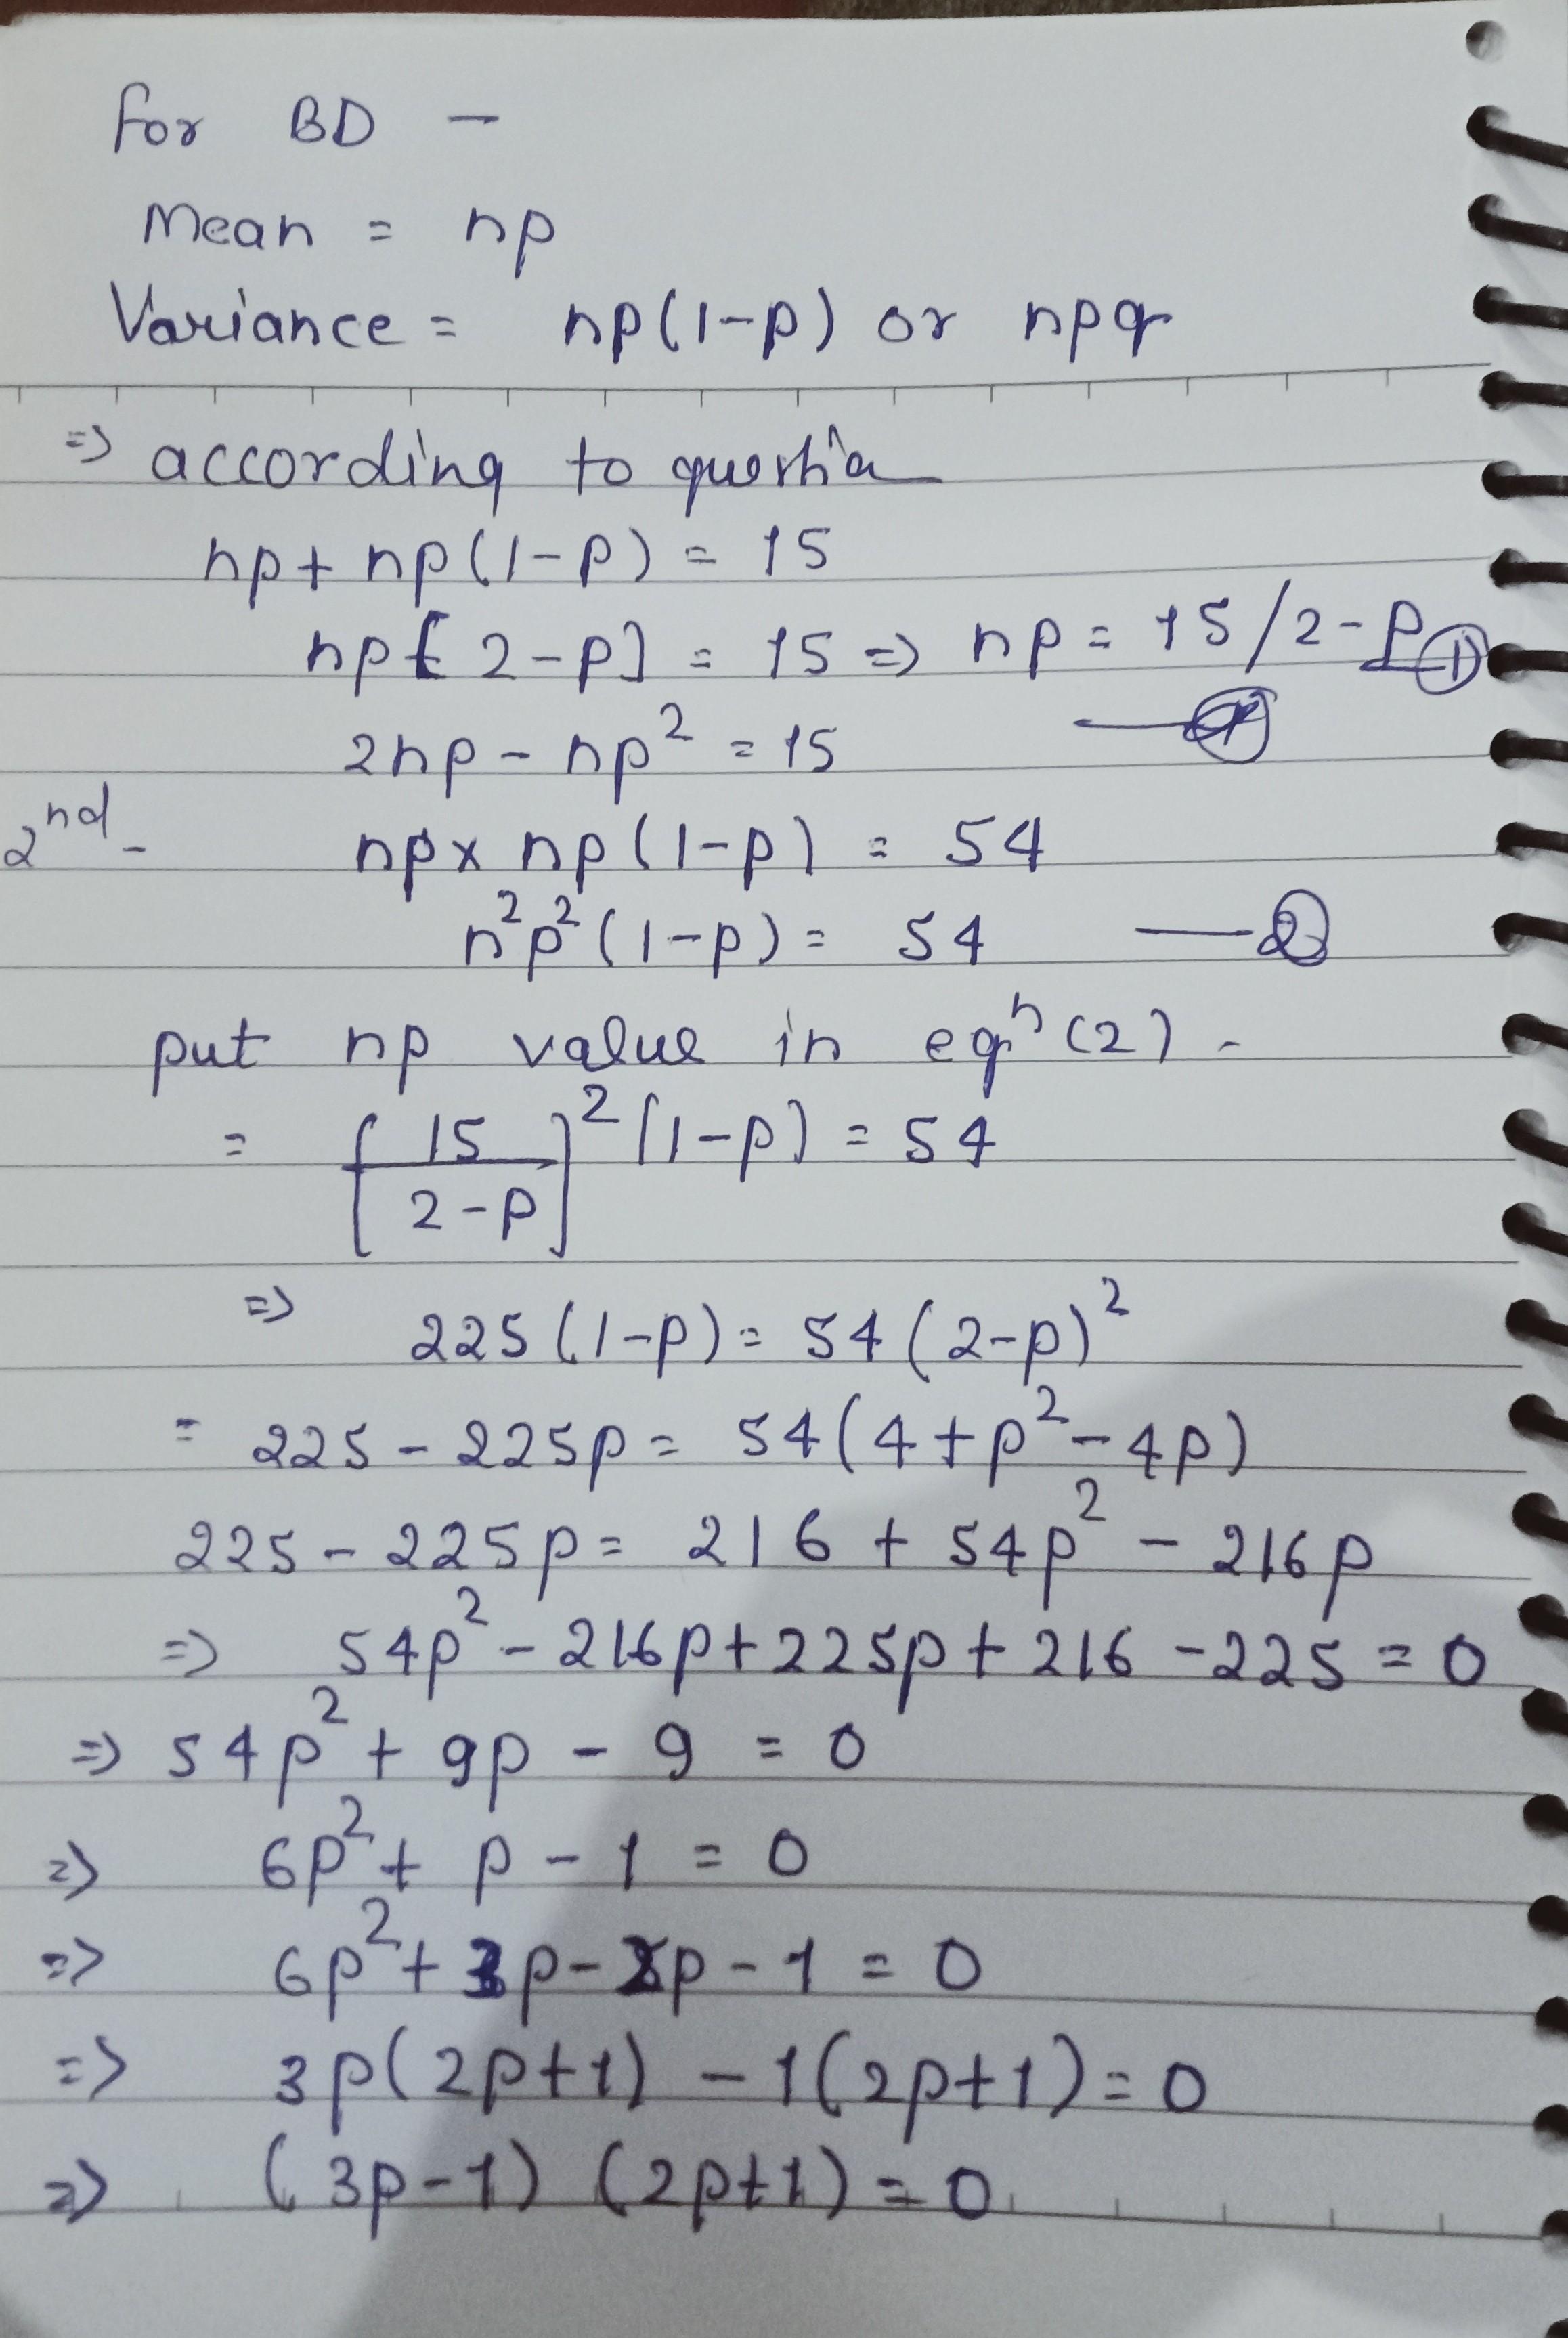 for BD -
Mean = np
Variance = np(1-p) or npq
=> according to question
np + np(1-p) = 15
np[2-p] = 15 => np = 15/2-p ①
2np - np² = 15
2nd - np x np(1-p) = 54
n²p²(1-p) = 54 — ②
put np value in eqⁿ (2) -
= [15/2-p]² (1-p) = 54
=> 225(1-p) = 54(2-p)²
= 225 - 225p = 54(4+p²-4p)
225 - 225p = 216 + 54p² - 216p
=> 54p² - 216p + 225p + 216 - 225 = 0
=> 54p² + 9p - 9 = 0
=> 6p² + p - 1 = 0
=> 6p² + 3p - 2p - 1 = 0
=> 3p(2p+1) - 1(2p+1) = 0
=> (3p-1) (2p+1) = 0